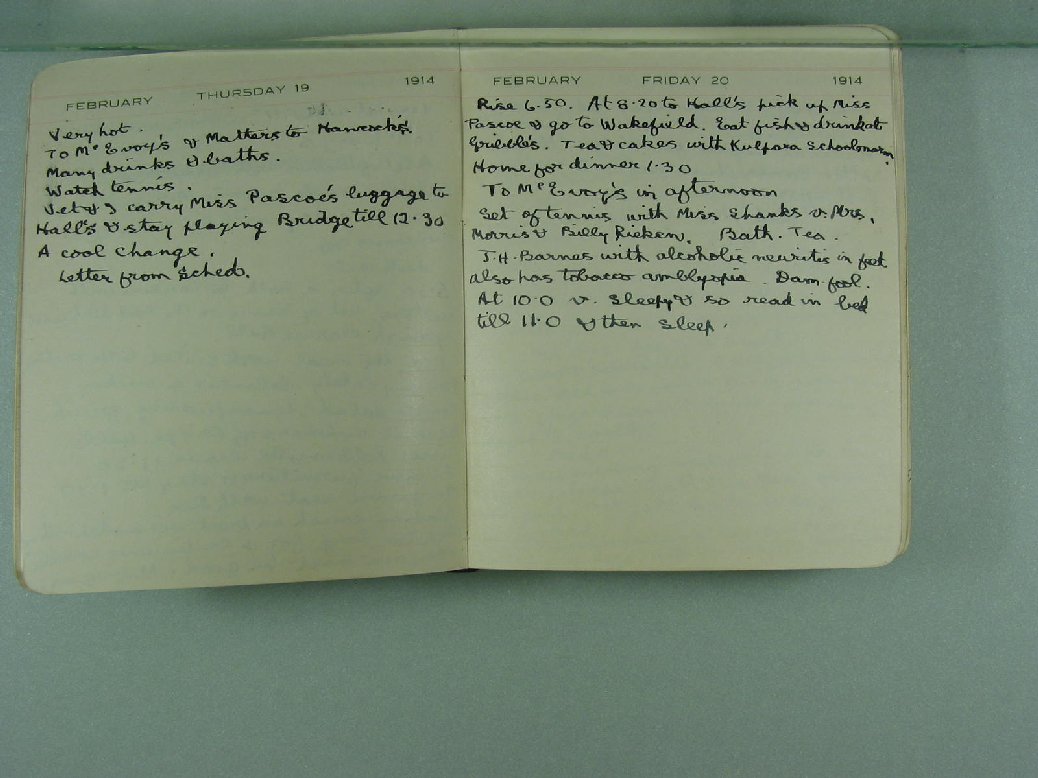 FEBRUARY THURSDAY 19 1914
Very hot.
To Mc Evoy's & Matters to Hancock's.
Many drinks & baths.
Watch tennis.
Vet & I carry Miss Pascoe's luggage to
Hall's & stay playing Bridge till 12.30
A cool change.
Letter from Scheds.
FEBRUARY FRIDAY 20 1914
Rise 6.50. At 8.20 to Hall's pick up Miss
Pascoe & go to Wakefield. Eat fish & drink at
Gribble's. Tea & cakes with Kulpara Schoolmarm.
Home for dinner 1.30
To Mc Evoy's in afternoon
Set of tennis with Miss Shanks v. Mrs.
Morris & Billy Rieken. Bath. Tea.
J.H. Barnes with alcoholic neuritis in feet
also has tobacco amblyopia. Dam fool.
At 10.0 v. sleepy & so read in bed
till 11.0 & then sleep.